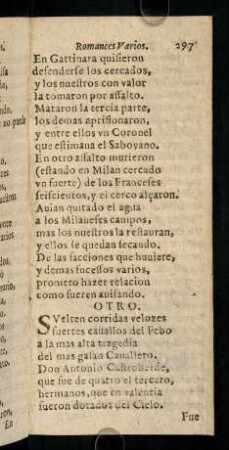 Romances Varios. 297
En Gattinara quisieron
defenderse los cercados,
y los nuestros con valor
la tomaron por assalto.
Mataron la tercia parte,
los demas aprisionaron,
y entre ellos vn Coronel
que estimaua el Saboyano.
En otro assalto murieron
(estando en Milan cercado
vn fuerte) de los Franceses
seiscientos, y el cerco alçaron.
Auian quitado el agua
a los Milaneses campos,
mas los nuestros la restauran,
y ellos se quedan secando.
De las facciones que huuiere,
y demas sucessos varios,
prometo hazer relacion
como fueren auisando.
OTRO.
SVelten corridas velozes
fuertes cauallos del Febo
a la mas alta tragedia
del mas galan Cauallero.
Don Antonio Castroverde,
que fue de quatro el tercero,
hermanos, que en valentia
fueron dotados del Cielo.
Fue